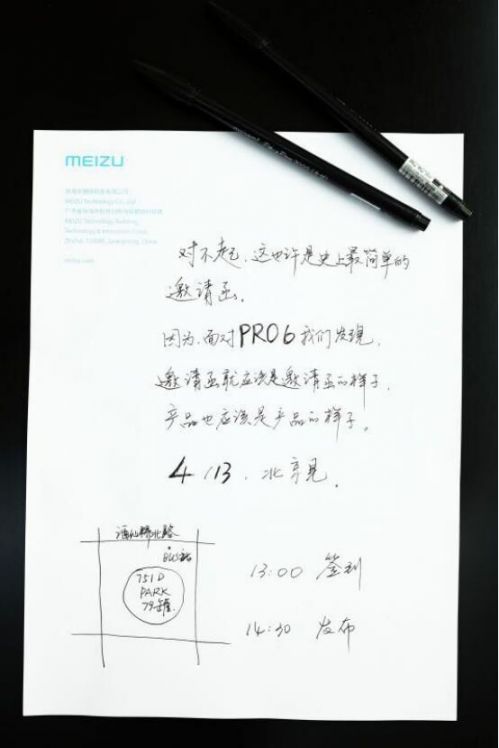 MEIZU
MEIZU Technology Co., Ltd
MEIZU Technology Building,
Technology & Innovation Coast,
Zhuhai, 519085, Guangdong, China
meizu.com
对不起,这也许是史上最简单的
邀请函.
因为,面对PRO6我们发现,
邀请函就应该是邀请函的样子,
产品也应该是产品的样子。
4/13.北京见.
酒仙桥北路
751D
PARK
79罐
13:00 签到
14:30 发布